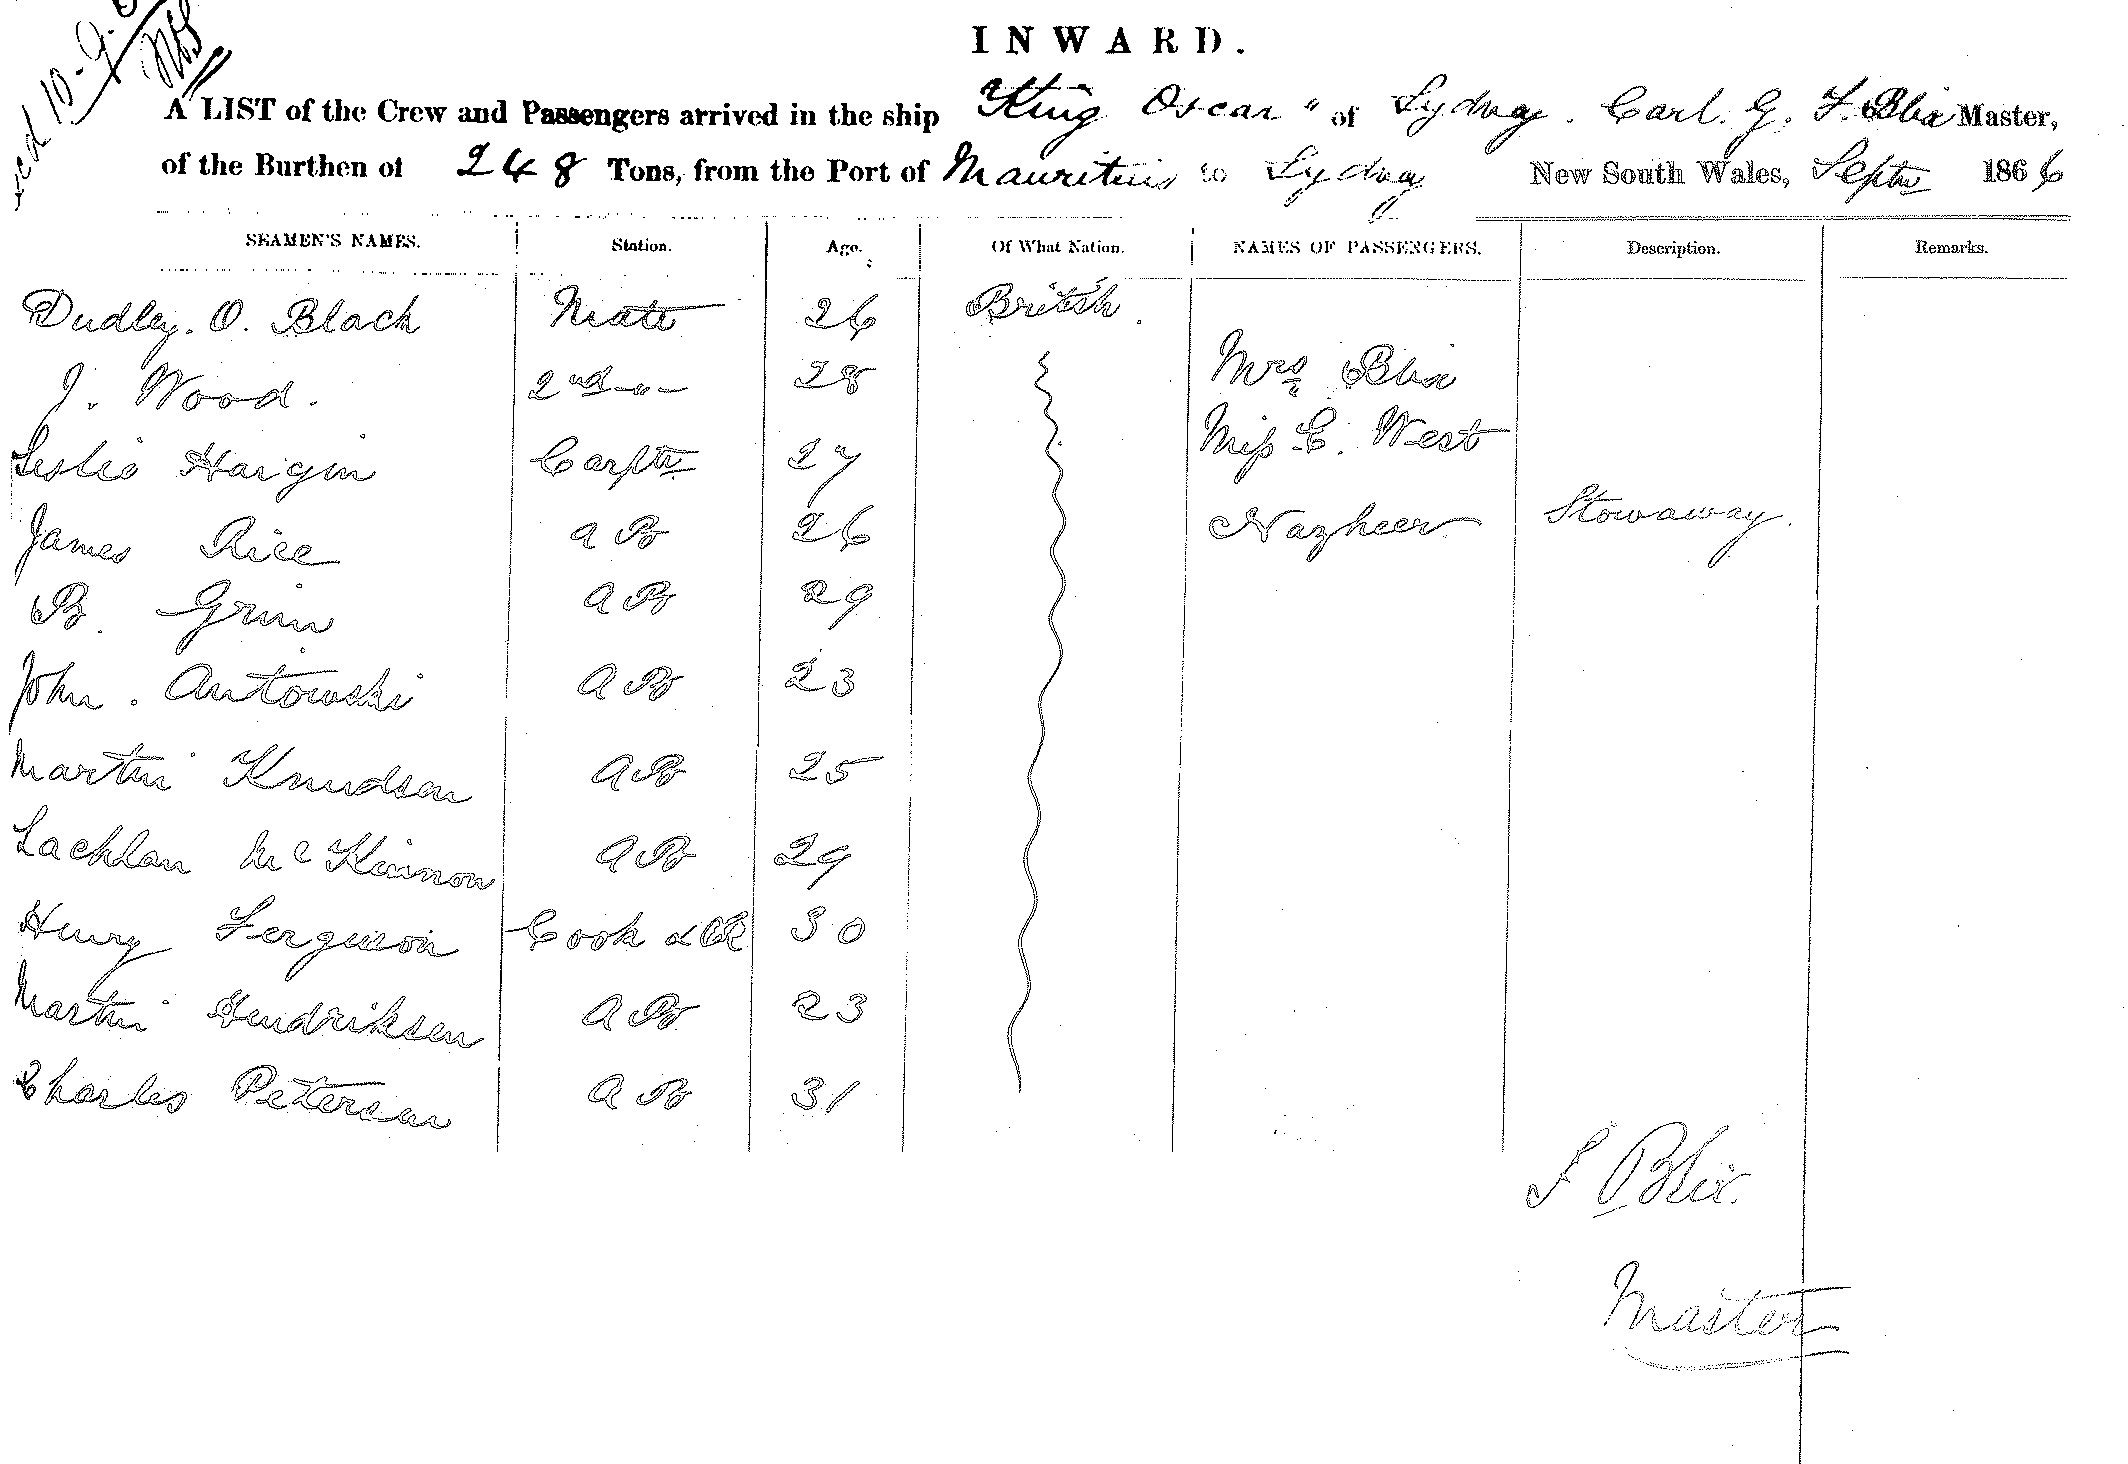 recd 10-9-
INWARD.
A LIST of the Crew and Passengers arrived in the ship King Oscar" of Sydney. Carl. G. F. Blix Master,
of the Burthen of 248 Tons, from the Port of Mauritius to Sydney New South Wales, Septr 1866
SEAMEN'S NAMES. Station. Age. Of What Nation. NAMES OF PASSENGERS. Description. Remarks.
Dudley. O. Black Mate 26 British.
J. Wood. 2nd -"- 28 Mrs Blix
Leslie Haigin Carptr 27 Miss C. West
James Rice AB 26 Nazheer Stowaway.
B. Grim AB 29
John. Antowski AB 23
Martin Knudsen AB 25
Lachlan McKinnon AB 29
Henry Ferguson Cook & 30
Martin Hendriksen AB 23
Charles Petersen AB 31
F Blix.
Master